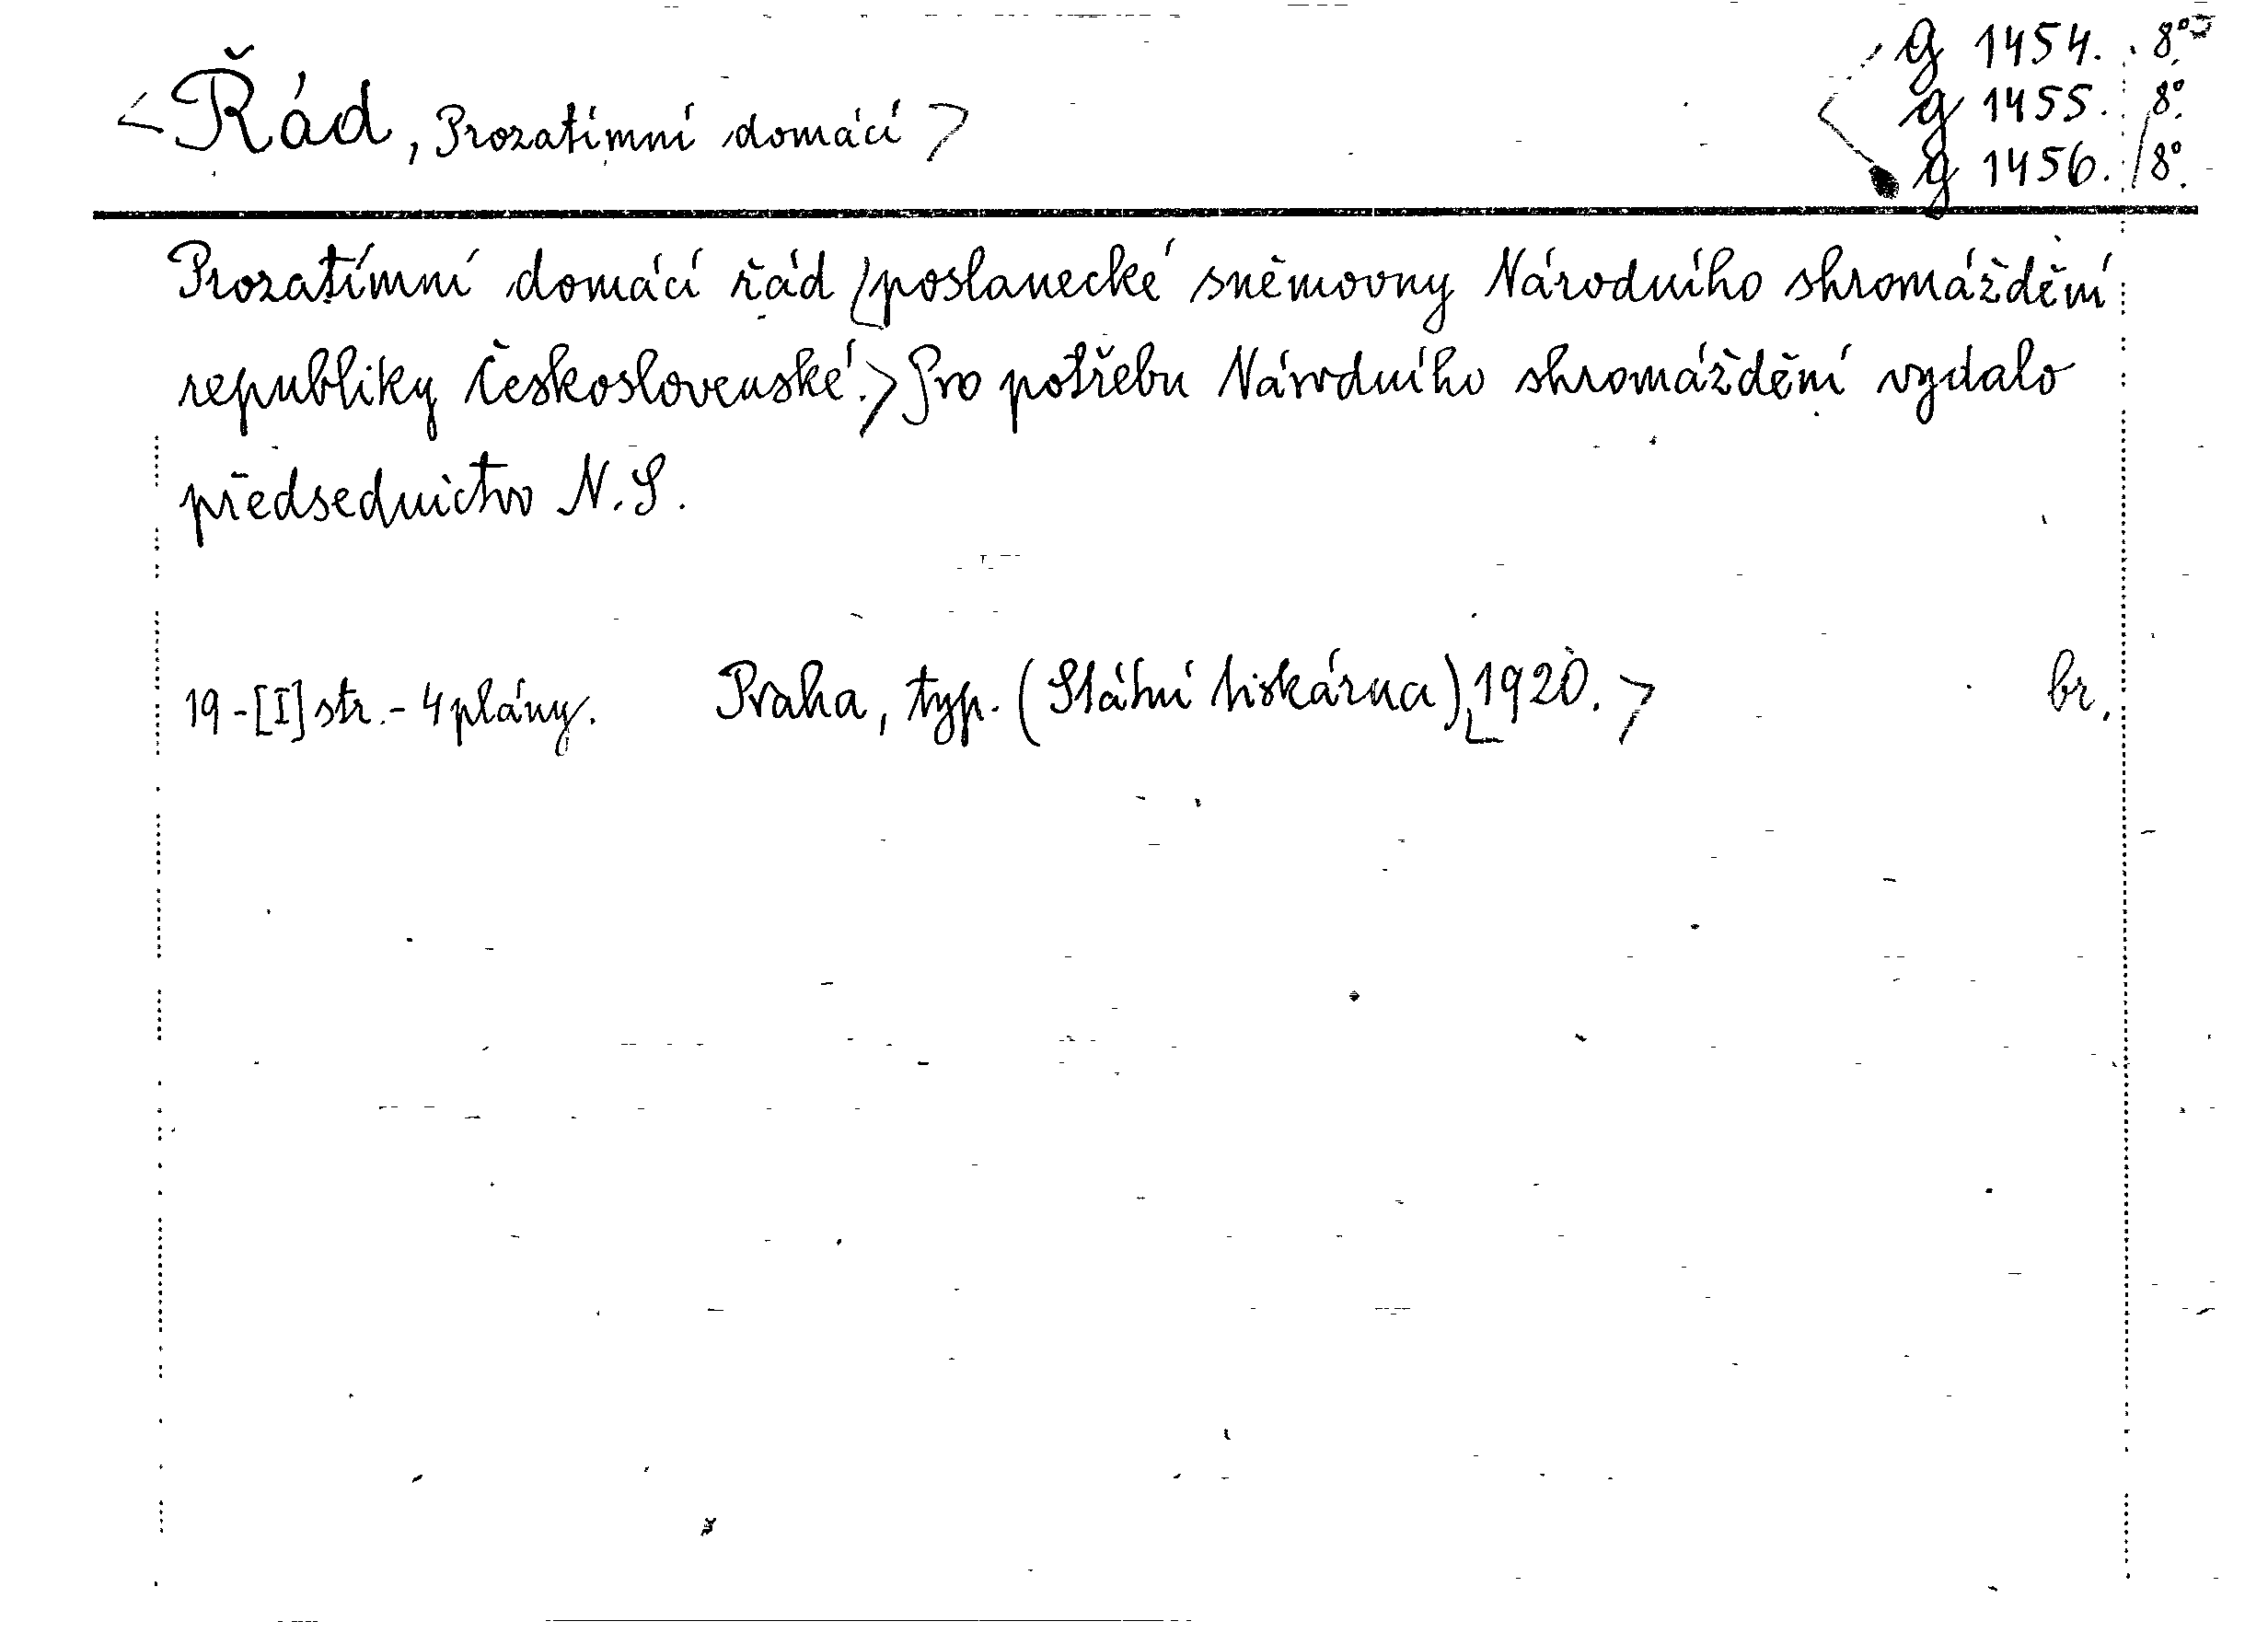 <Řád, Prozatímní domácí>
g 1454. 8°.
g 1455. 8°.
g 1456. 8°.
Prozatímní domácí řád poslanecké sněmovny Národního shromáždění
republiky Československé.> Pro potřebu Národního shromáždění vydalo
předsednictvo N.S.
19-[I] str.-4 plány. Praha, typ. (Státní tiskárna) 1920.> br.